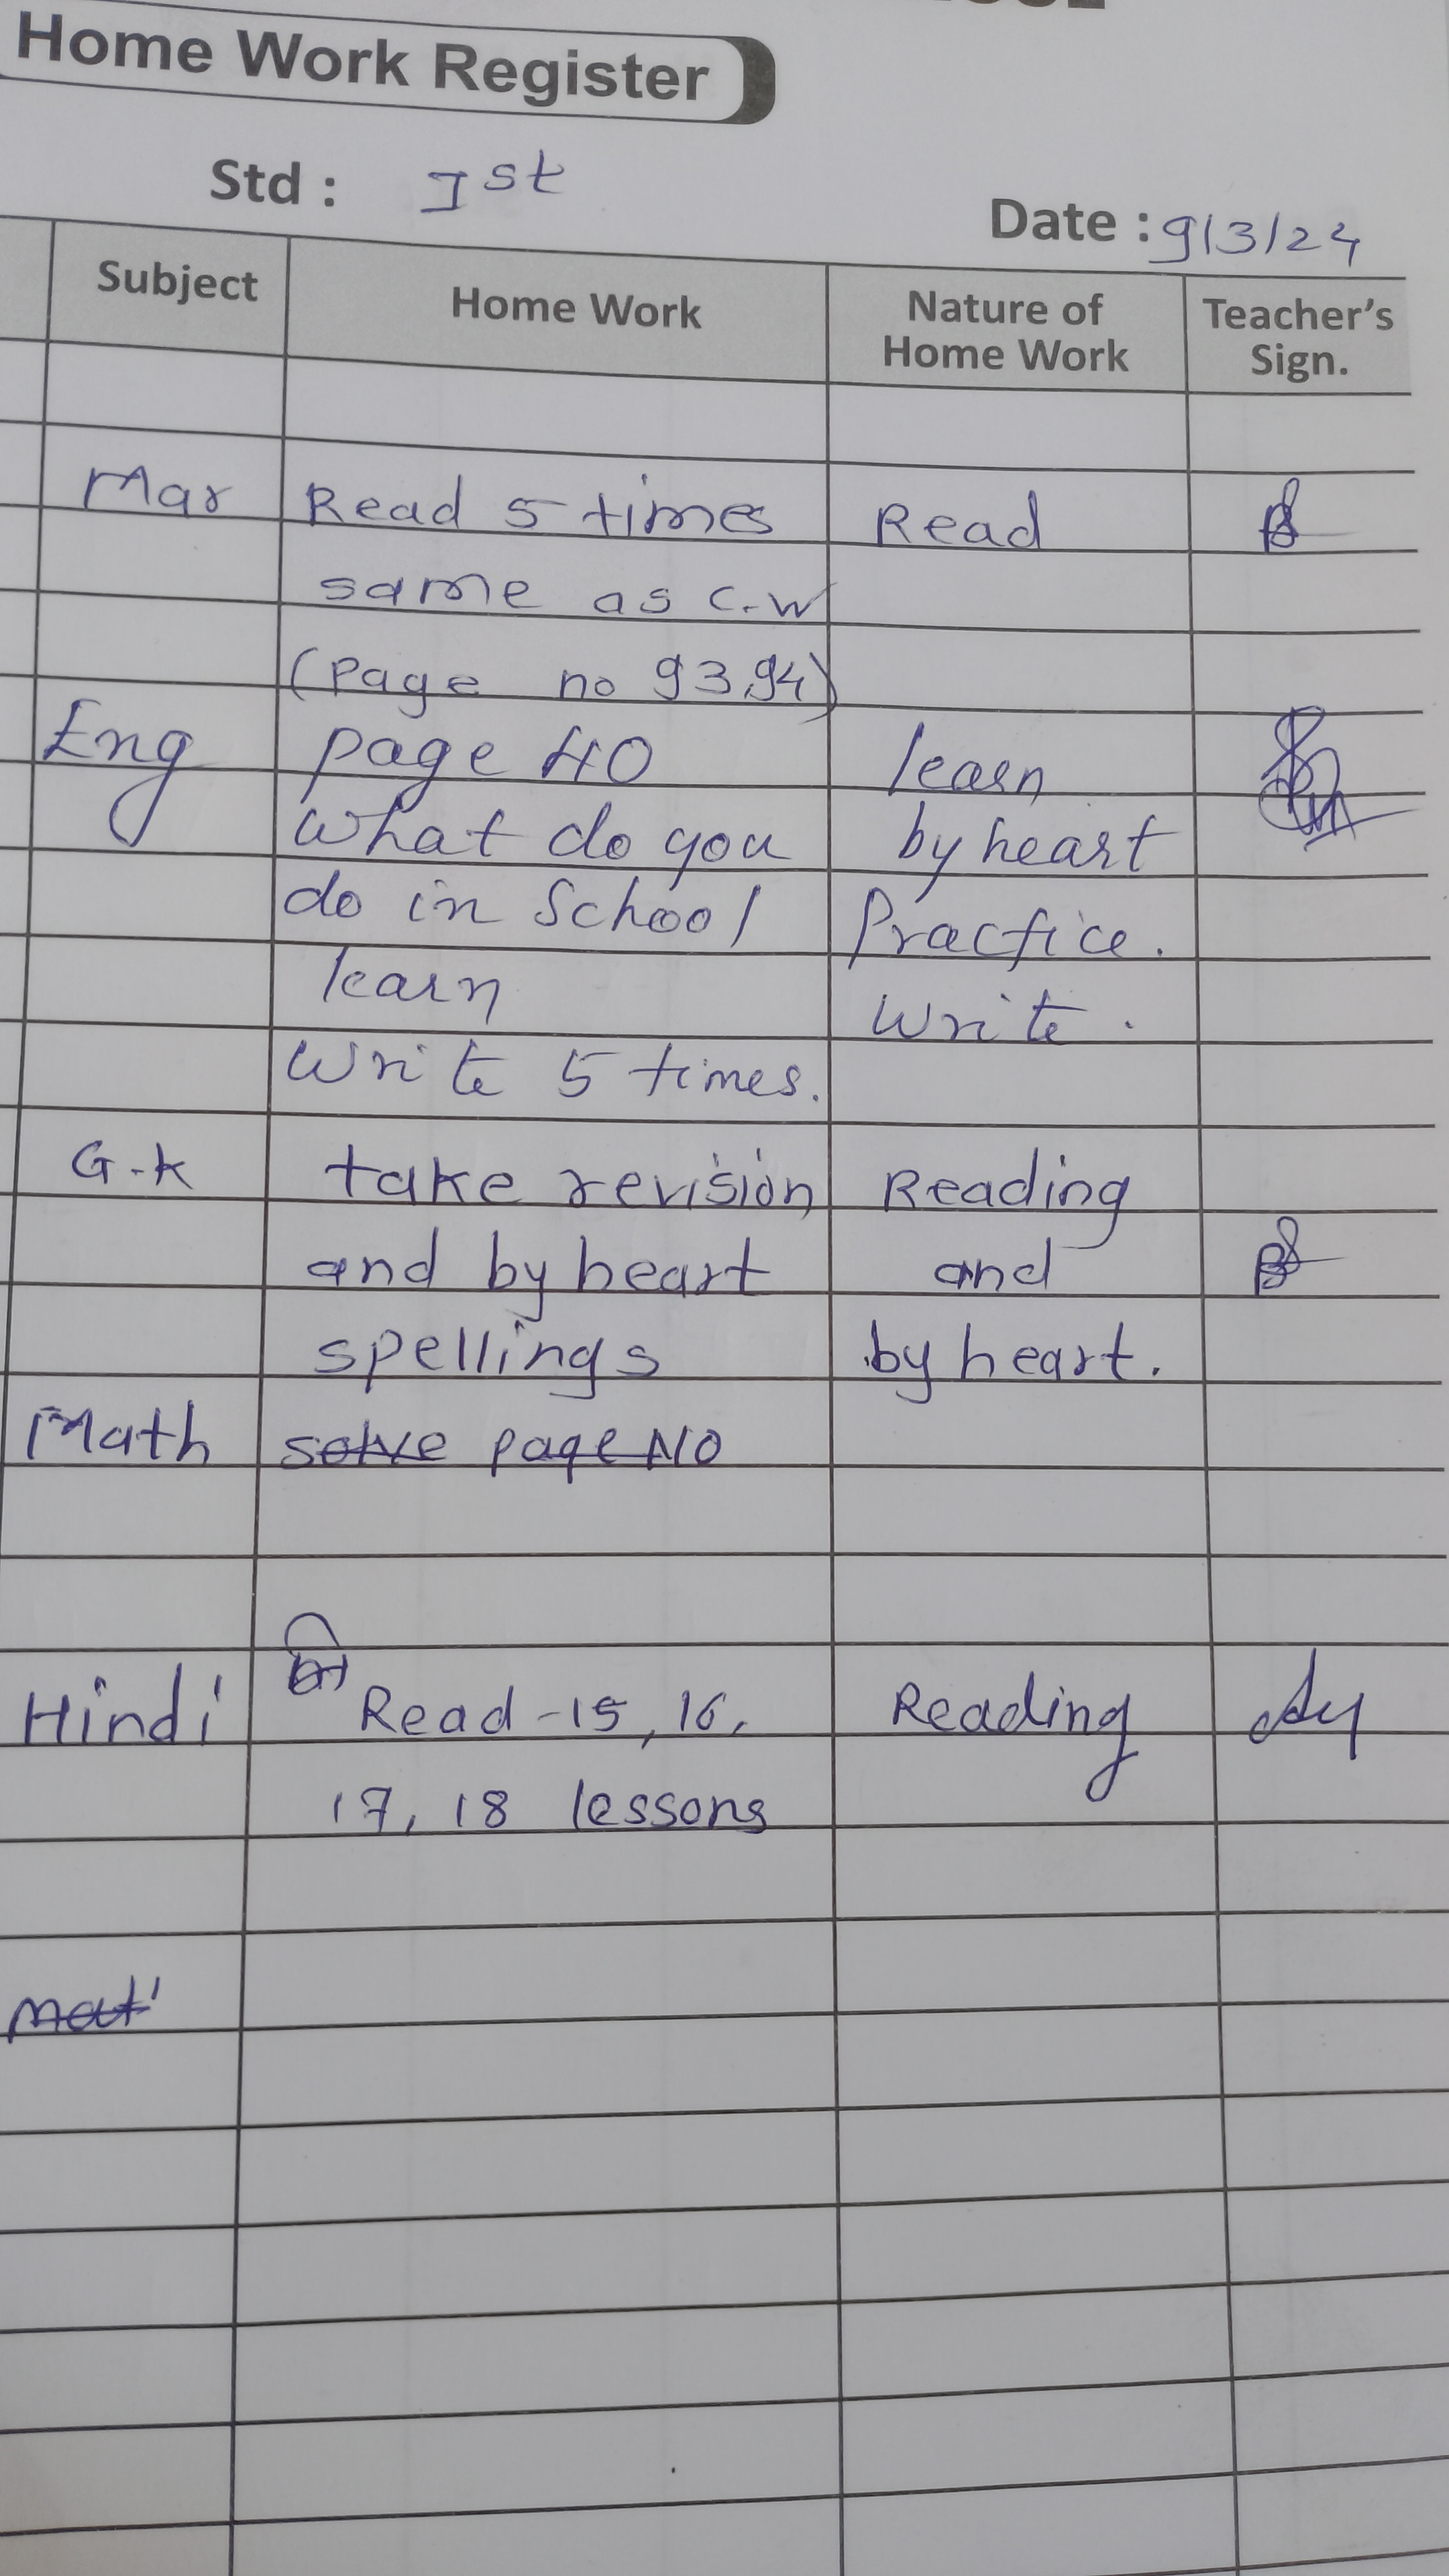 Home Work Register
Std : Ist
Date : 9/3/24
Subject Home Work Nature of Home Work Teacher's Sign.
Mar Read 5 times Read
same as C.W
(Page no 93,94)
Eng page 40 learn
What do you by heart
do in School Practice.
learn Write.
Write 5 times.
G-k take revision Reading
and by heart and
spellings by heart.
Math solve page No
Hindi Read -15, 16, Reading
17, 18 lessons